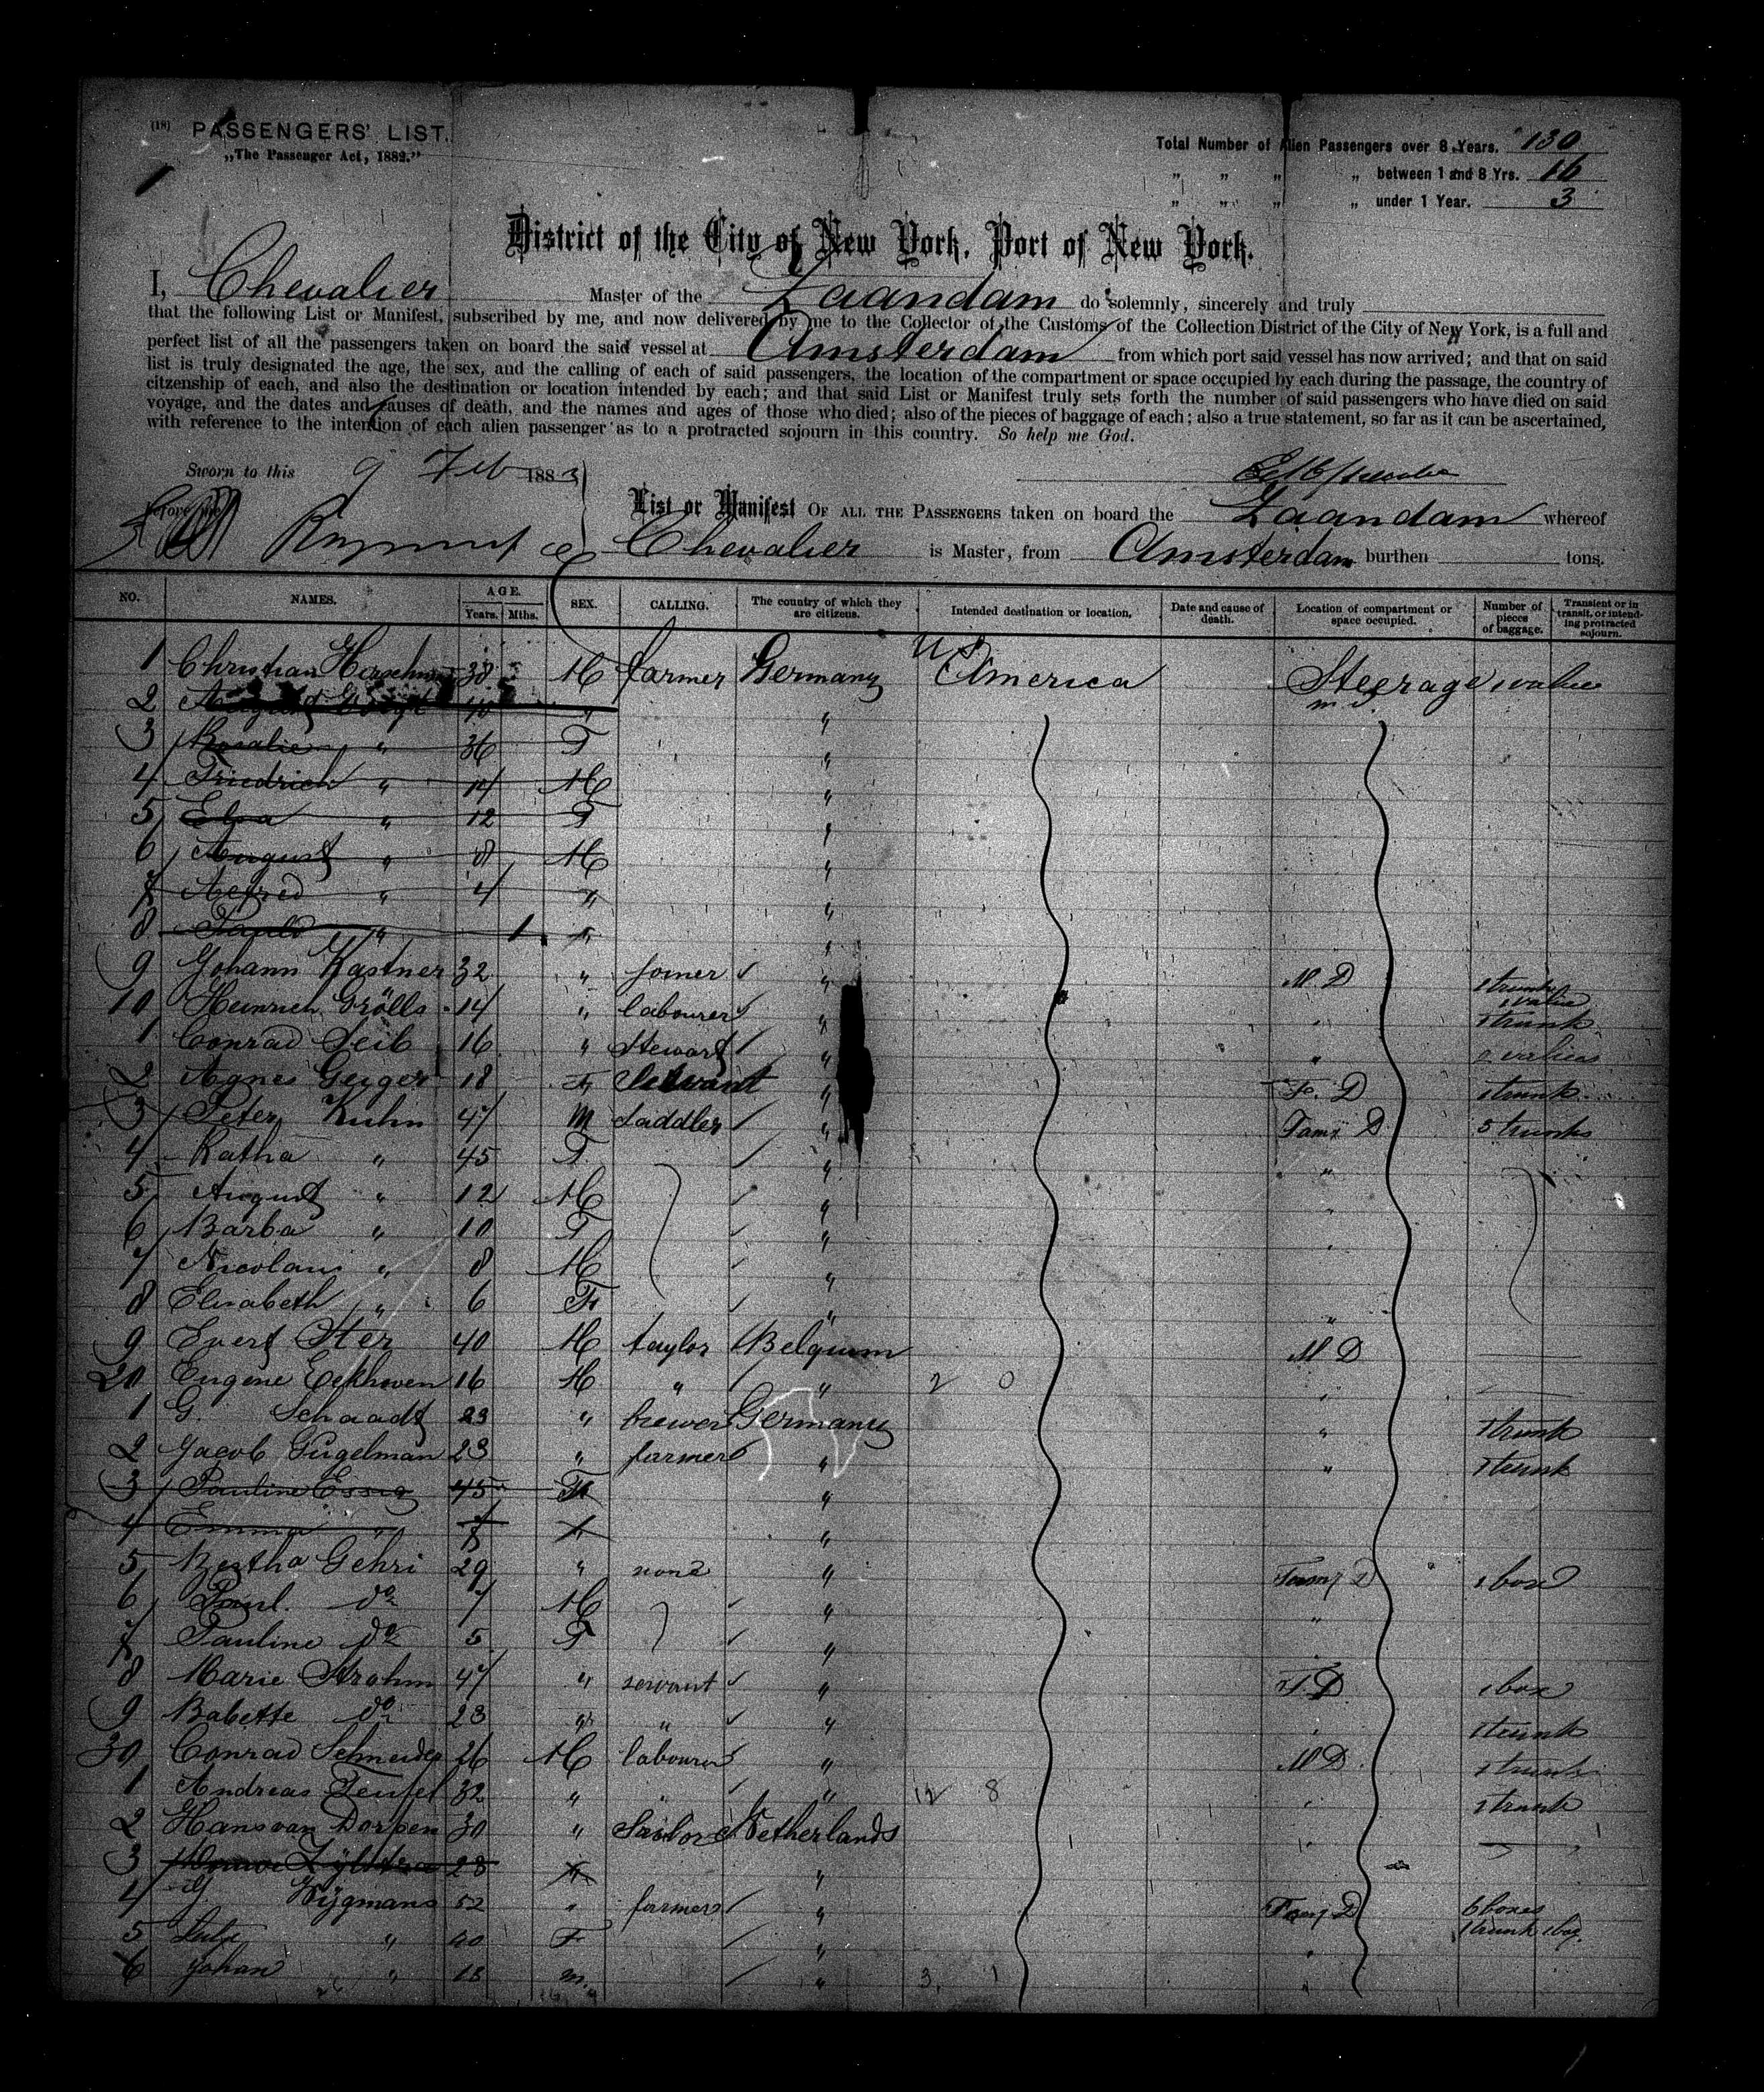 (18) PASSENGERS' LIST.
„The Passenger Act, 1882."
Total Number of Alien Passengers over 8 Years. 130
„ „ „ „ between 1 and 8 Yrs. 16
„ „ „ „ under 1 Year. 3
District of the City of New York, Port of New York.
I, Chevalier Master of the Zaandam do solemnly, sincerely and truly
that the following List or Manifest, subscribed by me, and now delivered by me to the Collector of the Customs of the Collection District of the City of New York, is a full and
perfect list of all the passengers taken on board the said vessel at Amsterdam from which port said vessel has now arrived; and that on said
list is truly designated the age, the sex, and the calling of each of said passengers, the location of the compartment or space occupied by each during the passage, the country of
citzenship of each, and also the destination or location intended by each; and that said List or Manifest truly sets forth the number of said passengers who have died on said
voyage, and the dates and causes of death, and the names and ages of those who died; also of the pieces of baggage of each; also a true statement, so far as it can be ascertained,
with reference to the intention of each alien passenger as to a protracted sojourn in this country. So help me God.
Sworn to this 9 Feb 1883
before me
List or Manifest OF ALL THE PASSENGERS taken on board the Zaandam whereof
Chevalier is Master, from Amsterdam burthen tons.
NO. NAMES. AGE. Years. Mths. SEX. CALLING. The country of which they are citizens. Intended destination or location. Date and cause of death. Location of compartment or space occupied. Number of pieces of baggage. Transient or in transit, or intending protracted sojourn.
1 Christian 38 M farmer Germany U S America Steerage
2 40 „ „
3 Rosalie „ 36 F „
4 Friedrich „ 14 M „
5 Elsa „ 12 F „
6 August „ 8 M „
7 Alfred „ 4 „ „
8 „ 1 „ „
9 Johann Kastner 32 „ joiner „ M. D 1 trunk 1 valise
10 Heinrich Grölls 14 „ labourer „ „ 1 trunk
1 Conrad Seib 16 „ Stewart „ „ 2 valises
2 Agnes Geyger 18 F Servant „ Fe. D 1 trunk
3 Peter Kuhn 47 M Saddler „ Fam: D 3 trunks
4 Katha „ 45 F „ „
5 August „ 12 M „ „
6 Barba „ 10 F „ „
7 Nicolaus „ 8 M „
8 Elisabeth „ 6 F „ „
9 Evert Ster 40 M taylor Belgium M D
20 Eugene Eekhoven 16 M „ „ 2 0 „
1 G. Schaadt 23 „ brewer Germany „ 1 trunk
2 Jacob Gugelman 23 „ farmer „ „ 1 trunk
3 Pauline Essig 45 F „
4 Emma „ „ „
5 Bertha Gehri 29 „ none „ Famy D 1 box
6 Paul do 7 M „ „
7 Pauline do 5 F „
8 Marie Strohm 47 „ servant „ F. D 1 box
9 Babette do 23 „ „ „ „ 1 trunk
30 Conrad Schneider 26 M labourer „ M D. 1 trunk
1 Andreas Teufel 32 „ „ „ 12 8 „ 1 trunk
2 Hans van Dorpen 30 „ Sailor Netherlands „
3 28 „ „
4 Wÿgmans 52 „ farmer „ Famy D 6 boxes
5 „ 40 F „ „ 1 trunk 1 bag.
6 Johan „ 18 m. „ 3. 1 „